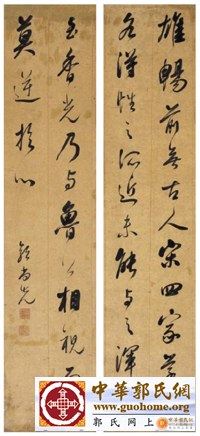 雄暢前無古人宋四家
各得性之所近未能與之渾
至香光乃與魯公相視而
莫逆於心
郭尚先
中華郭氏網
www.guohome.org
郭氏網上